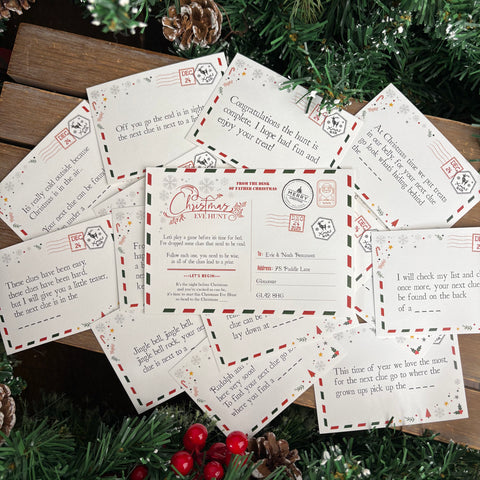 DEC
24
Off you go the end is in sight
the next clue is next to a
Congratulations the hunt is
complete, I hope had fun and
enjoy your treat!
DEC
24
At Christmas time we put treats
in our belly, for your next
go look what
DEC
24
It's really cold outside because
Christmas is in the air.
Your next clue can be found
FROM THE DESK
OF FATHER CHRISTMAS
MERRY
Christmas
EVE HUNT
Let's play a game before it's time for bed,
I've dropped some clues that need to be read.
Follow each one, you need to be wise,
as all of the clues lead to a prize.
LET'S BEGIN
It's the night before Christmas
and you're excited as can be,
it's time to start the Christmas Eve Hunt
so head to the Christmas
To: Eric & Noah Beaumont
Address: 75 Puddle Lane
Gloucester
GL42 8HG
DEC
24
These clues have been easy,
these clues have been hard,
but I will give you a little teaser,
next clue is in the
DEC
24
I will check my list and
once more, your next clue
be found on the back
of a
Jingle bell, jingle bell,
jingle bell rock, your
clue is next to
clue can be
lay down at
Rudolph
here very soon!
To find your next clue go
where you find a
This time of year we love the most,
for the next clue go to where the
grown ups pick up the